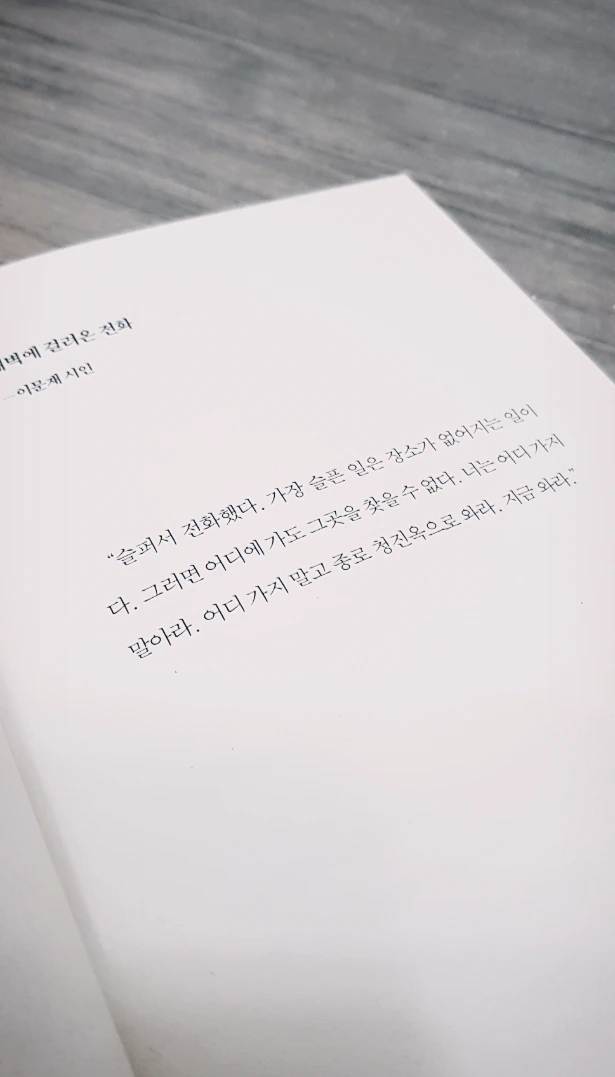 새벽에 걸려온 전화
―이문재 시인
“슬퍼서 전화했다. 가장 슬픈 일은 장소가 없어지는 일이
다. 그러면 어디에 가도 그곳을 찾을 수 없다. 너는 어디 가지
말아라. 어디 가지 말고 종로 청진옥으로 와라. 지금 와라.”